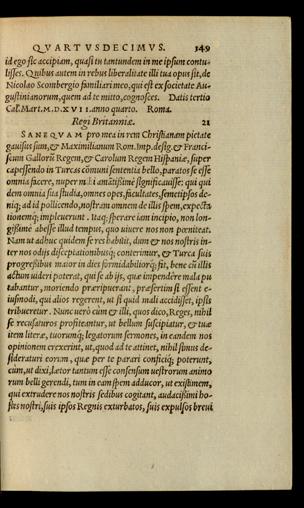 QVARTVSDECIMVS. 149
id ego sic accipiam, quasi tu tantundem in me ipsum contu-
lisses. Quibus autem in rebus liberalitate illi tua opus sit, de
Nicolao Scombergio familiari meo, qui est ex societate Au-
gustinianorum, quem ad te mitto, cognosces. Datis tertio
Cal. Mart. M.D.XVII. anno quarto. Roma.
Regi Britanniæ. 21
SANEQVAM pro mea in rem Christianam pietate
gauisus sum, & Maximilianum Rom. Imp. desig. & Franci-
scum Gallorũ Regem, & Carolum Regem Hispaniæ, super
capessendo in Turcas cõmuni sententia bello, paratos se esse
omnia facere, nuper mihi amãtissimè significauisse: qui qui
dem omnia sua studia, omnes opes, facultates, semetipsos de-
niq; ad id pollicendo, nostram omnem de illis spem, expecta
tionemq; impleuerunt. Itaq; sperare iam incipio, non lon-
gissimè abesse illud tempus, quo uiuere nos non pœniteat.
Nam ut adhuc quidem se res habuit, dum & nos nostris in-
ter nos odijs disceptationibusq; conterimur, & Turca suis
progressibus maior in dies formidabiliorq; fit, bene cũ illis
actum uideri poterat, qui se ab ijs, quæ impendere mala pu
tabantur, moriendo præripuerant, præsertim si essent e-
iusmodi, qui alios regerent, ut si quid mali accidisset, ipsis
tribueretur. Nunc uerò cùm & illi, quos dico, Reges, nihil
se recusaturos profiteantur, ut bellum suscipiatur, & tuæ
tem literæ, tuorumq; legatorum sermones, in eandem nos
opinionem erexerint, ut, quod ad te attinet, nihil simus de-
sideraturi eorum, quæ per te parari conficiq; poterunt,
cùm, ut dixi, lætor tantum esse consensum uestrorum animo
rum belli gerendi, tum in eam spem adducor, ut existimem,
qui extrudere nos nostris sedibus cogitant, audacissimi ho-
stes nostri, suis ipsos Regnis exturbatos, suis expulsos breui